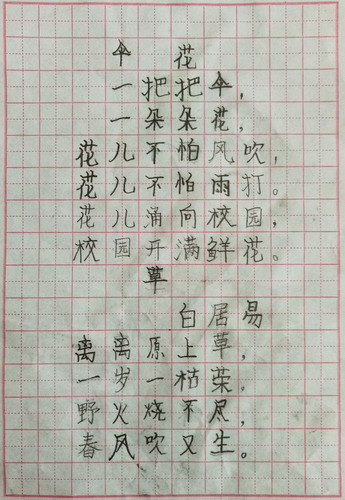 伞 花
一把把伞,
一朵朵花,
花儿不怕风吹,
花儿不怕雨打。
花儿涌向校园,
校园开满鲜花。
草
白居易
离离原上草,
一岁一枯荣。
野火烧不尽,
春风吹又生。